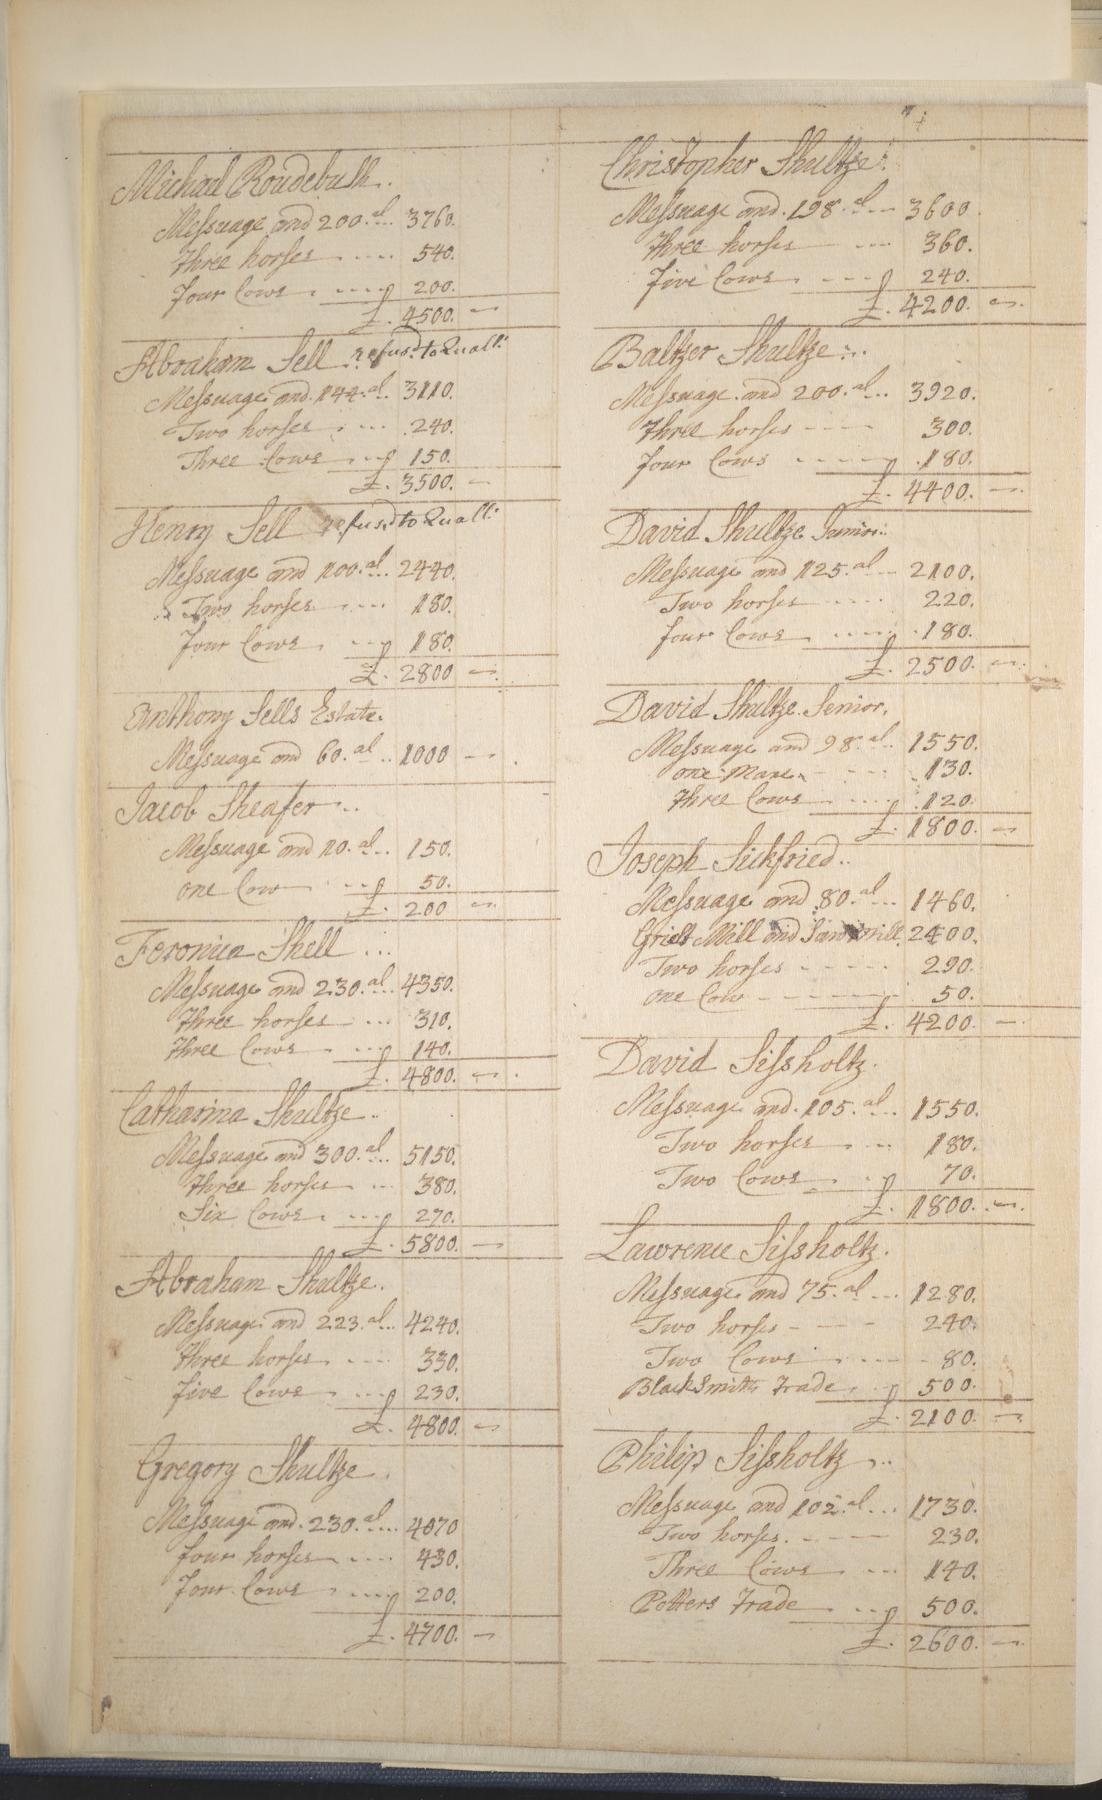 Michael Roudebush.
Messuage and 200. al... 3760.
Three horses .... 540.
Four Cows .... 200.
£. 4500. —
Abraham Sell. refus.d to Quall.
Messuage and 144. al. 3110.
Two horses .... 240.
Three Cows ... 150.
£. 3500. —
Henry Sell refus.d to Quall.
Messuage and 100. al... 2440.
Two horses .... 180.
Four Cows ... 180.
£. 2800 —
Anthony Sells Estate.
Messuage and 60. al .. 1000 —
Jacob Sheafer...
Messuage and 10. al.. 150.
one Cow ... 50.
£. 200 —
Feronica Shell ...
Messuage and 230. al... 4350.
Three horses ... 310.
Three Cows ... 140.
£. 4800. —
Catharina Shultze..
Messuage and 300. al... 5150.
Three horses ... 380.
Six Cows .... 270.
£. 5800. —
Abraham Shultze.
Messuage and 223. al... 4240.
Three horses .... 330.
Five Cows .... 230.
£. 4800. —
Gregory Shultze.
Messuage and 230. al.... 4070
four horses .... 430.
Four Cows .... 200.
£. 4700. —
Christopher Shultze.
Messuage and 198. al... 3600.
Three horses .... 360.
Five Cows .... 240.
£. 4200. —
Baltzer Shultze...
Messuage and 200. al... 3920.
Three horses .... 300.
four Cows .... 180.
£. 4400. —
David Shultze Junior.
Messuage and 125. al... 2100.
Two horses .... 220.
four Cows .... 180.
£. 2500. —
David Shultze Senior.
Messuage and 98. al. 1550.
one Mare .... 130.
three Cows .... 120.
£. 1800. —
Joseph Sickfried..
Messuage and 80. al... 1460.
Grist Mill and Sawmill. 2400.
Two horses .... 290.
one Cow .... 50.
£. 4200. —
David Sissholtz.
Messuage and 105. al... 1550.
Two horses .... 180.
Two Cows .... 70.
£. 1800. —
Lawrence Sissholtz.
Messuage and 75. al ... 1280.
Two horses .... 240.
Two Cows .... 80.
BlackSmith Trade ... 500.
£. 2100. —
Philip Sissholtz...
Messuage and 102. al... 1730.
Two horses .... 230.
Three Cows ... 140.
Potters Trade ... 500.
£. 2600. —